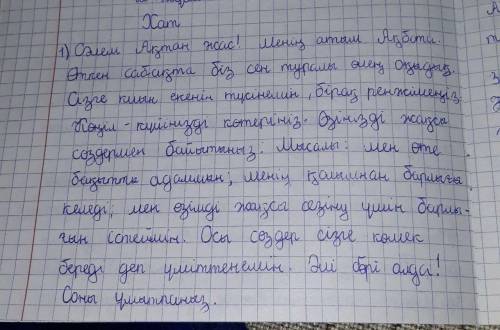 Хат
1) Сәлем Ақтан жас! Менің атым Ақбота.
Өткен сабақта біз сен туралы өлең оқыдық.
Сізге қиын екенін түсінемін, бірақ ренжімеңіз.
Көңіл-күйіңізді көтеріңіз. Өзіңізді жақсы
сөздермен байытыңыз. Мысалы: мен өте
бақытты адаммын; менің қолымнан барлығы
келеді; мен өзімді жақсы сезіну үшін барлы-
ғын істеймін. Осы сөздер сізге көмек
береді деп үміттенемін. Әлі бәрі алда!
Соны ұмытпаңыз.